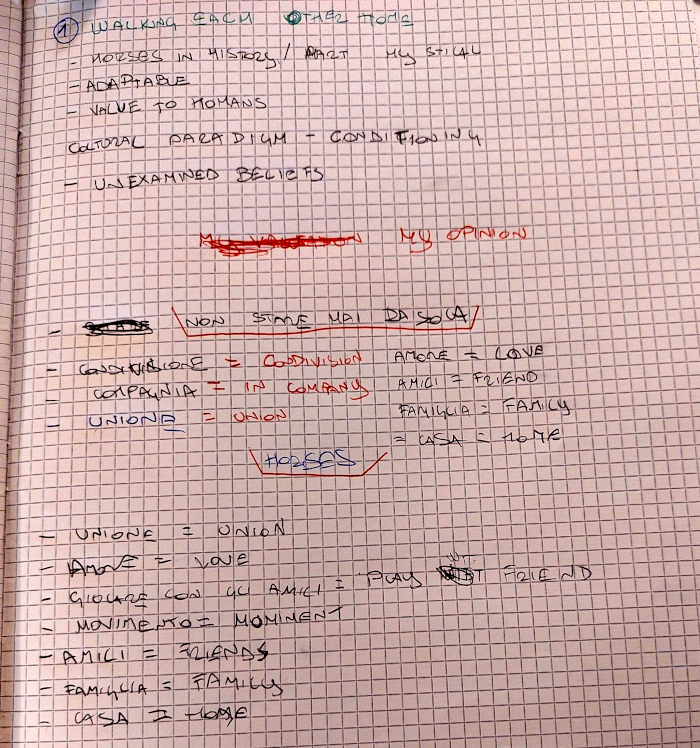 ① WALKING EACH OTHER HOME
- HORSES IN HISTORY / ART MYSTICAL
- ADAPTABLE
- VALUE TO HOMANS
COLTORAL PARADIGM - CONDITIONING
- UNEXAMINED BELIEFS
MY OPINION
- NON STARE MAI DA SOLA
- CONDIVISIONE = CONDIVISION AMORE = LOVE
- COMPAGNIA = IN COMPANY AMICI = FRIEND
- UNIONE = UNION FAMIGLIA = FAMILY
= CASA = HOME
HORSES
- UNIONE = UNION
- AMORE = LOVE
- GIOCARE CON GLI AMICI = PLAY WIT FRIEND
- MOVIMENTO = MOMINENT
- AMICI = FRIENDS
- FAMIGLIA = FAMILY
- CASA = HOME